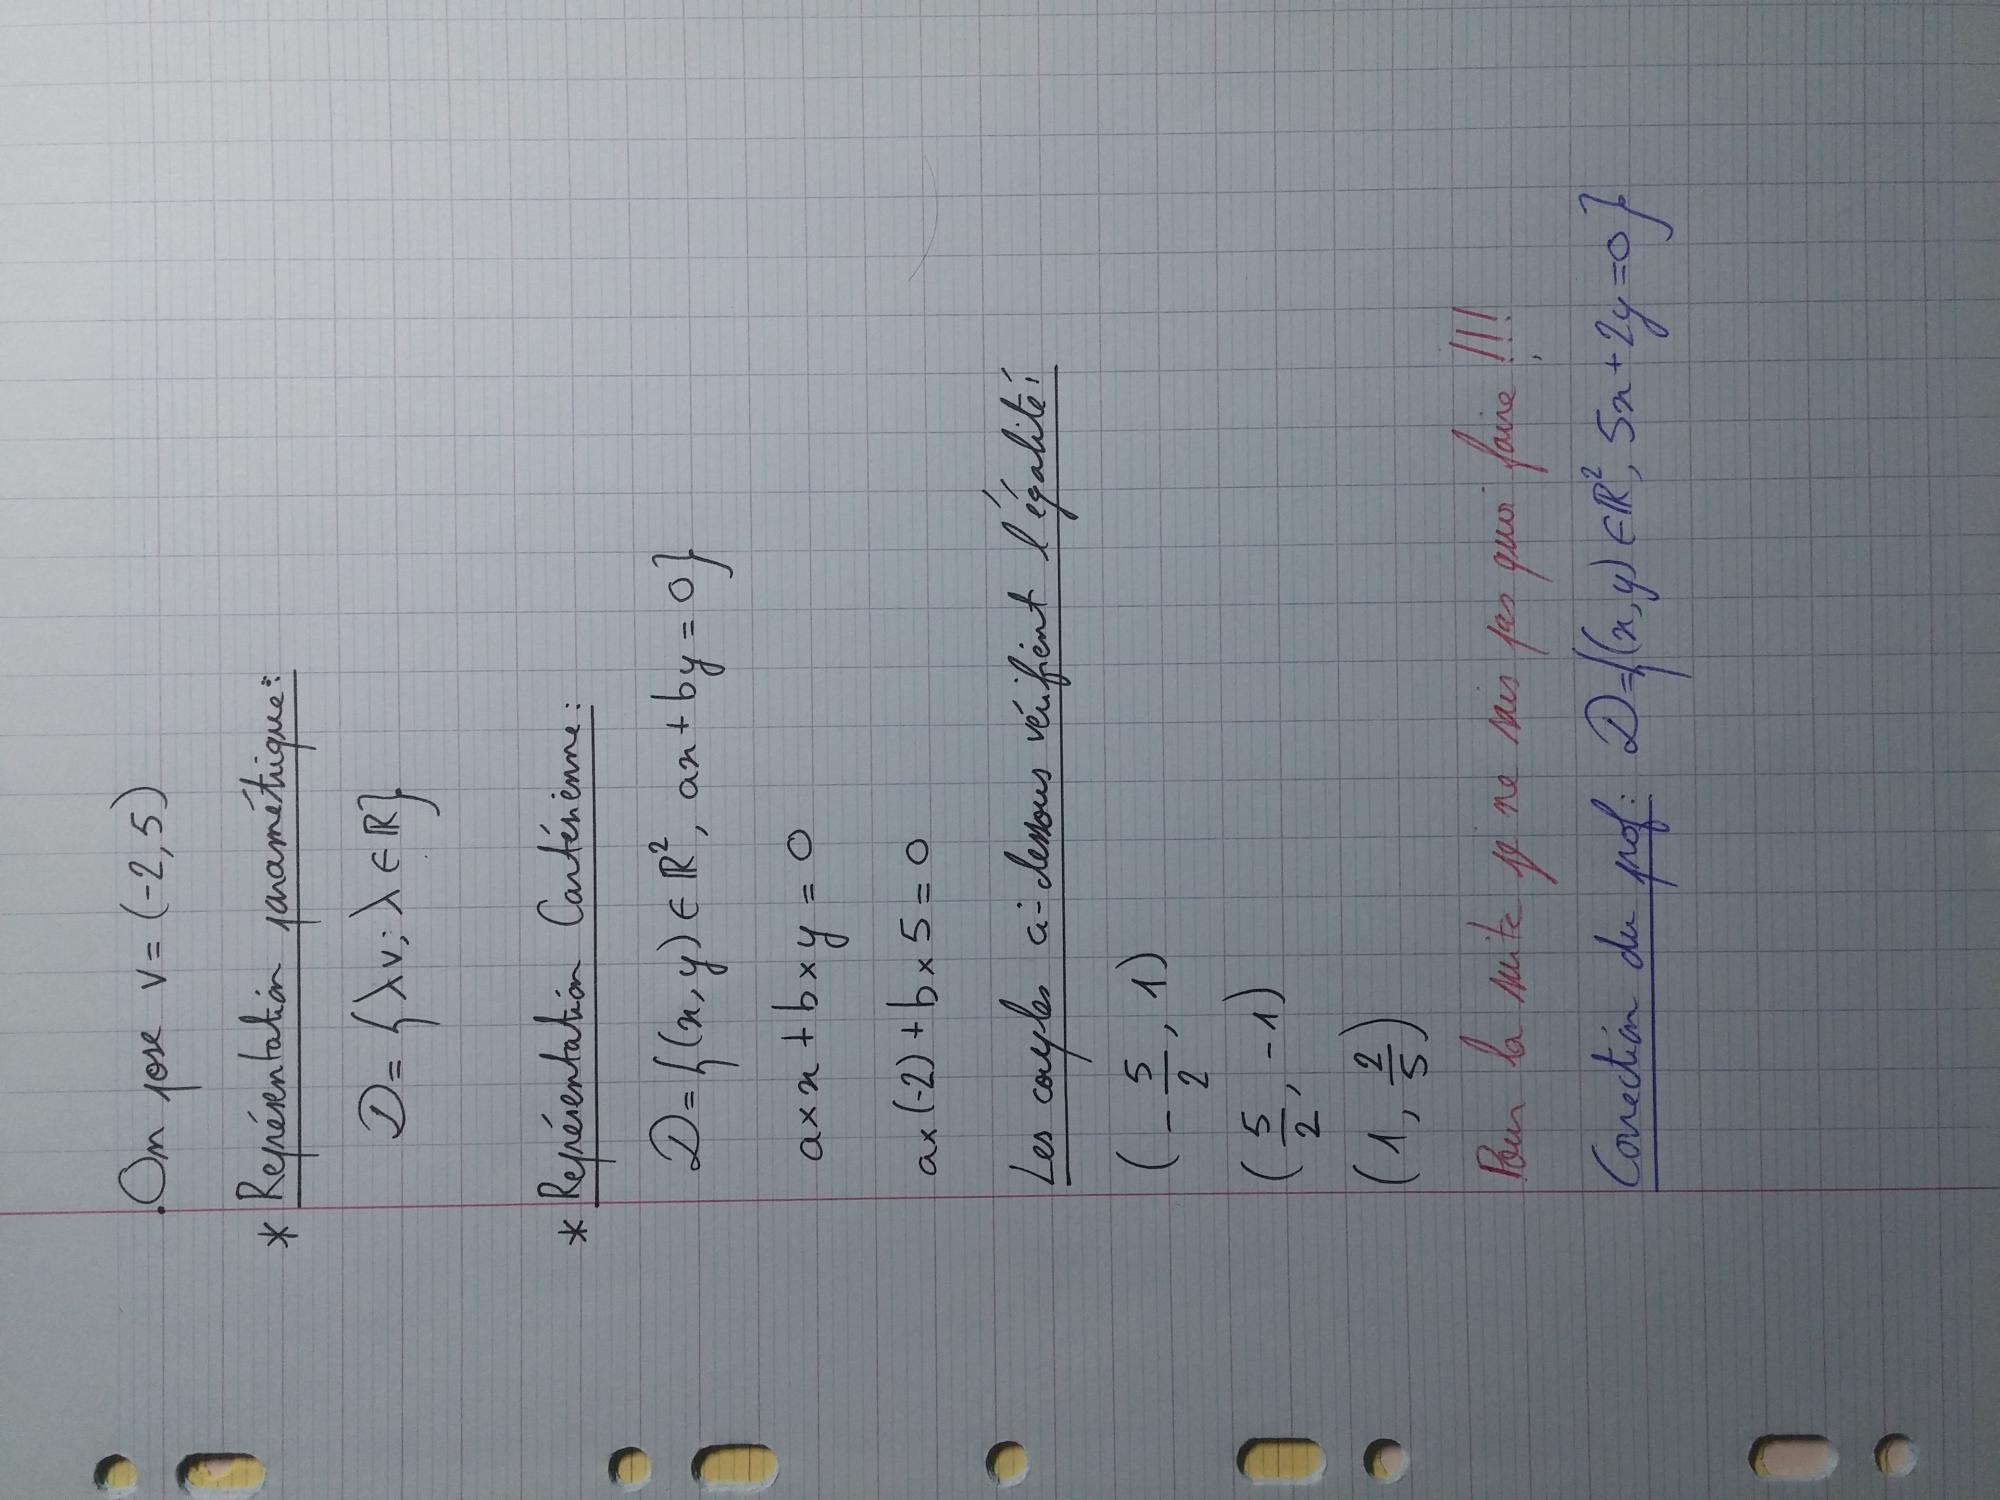 . On pose v = (-2, 5)
* Représentation paramétrique :
D = {λv ; λ ∈ ℝ}
* Représentation Cartésienne :
D = {(x, y) ∈ ℝ², ax + by = 0}
a × x + b × y = 0
a × (-2) + b × 5 = 0
Les couples ci-dessous vérifient l'égalité :
(-5/2, 1)
(5/2, -1)
(1, 2/5)
Pour la suite je ne sais pas quoi faire !!!
Correction du prof : D = {(x, y) ∈ ℝ², 5x + 2y = 0}